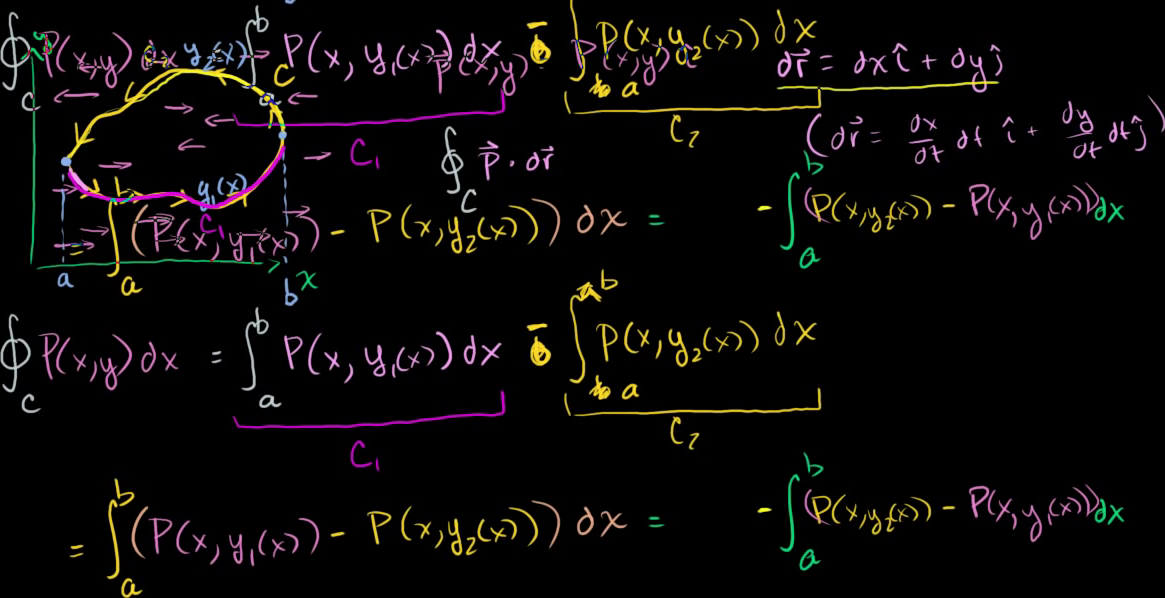 ∮_C P(x,y) dx = ∫_a^b P(x, y₁(x)) dx − ∫_a^b P(x, y₂(x)) dx
y
y₂(x)
C
P(x,y) î
C₁
C₂
d r⃗ = dx î + dy ĵ
(d r⃗ = dx/dt dt î + dy/dt dt ĵ)
∮_C P⃗ · d r⃗
y₁(x)
C₁
= ∫_a^b (P(x, y₁(x)) − P(x, y₂(x))) dx = −∫_a^b (P(x, y₂(x)) − P(x, y₁(x))) dx
a
b
x
∮_C P(x,y) dx = ∫_a^b P(x, y₁(x)) dx − ∫_a^b P(x, y₂(x)) dx
C₁
C₂
= ∫_a^b (P(x, y₁(x)) − P(x, y₂(x))) dx = −∫_a^b (P(x, y₂(x)) − P(x, y₁(x))) dx